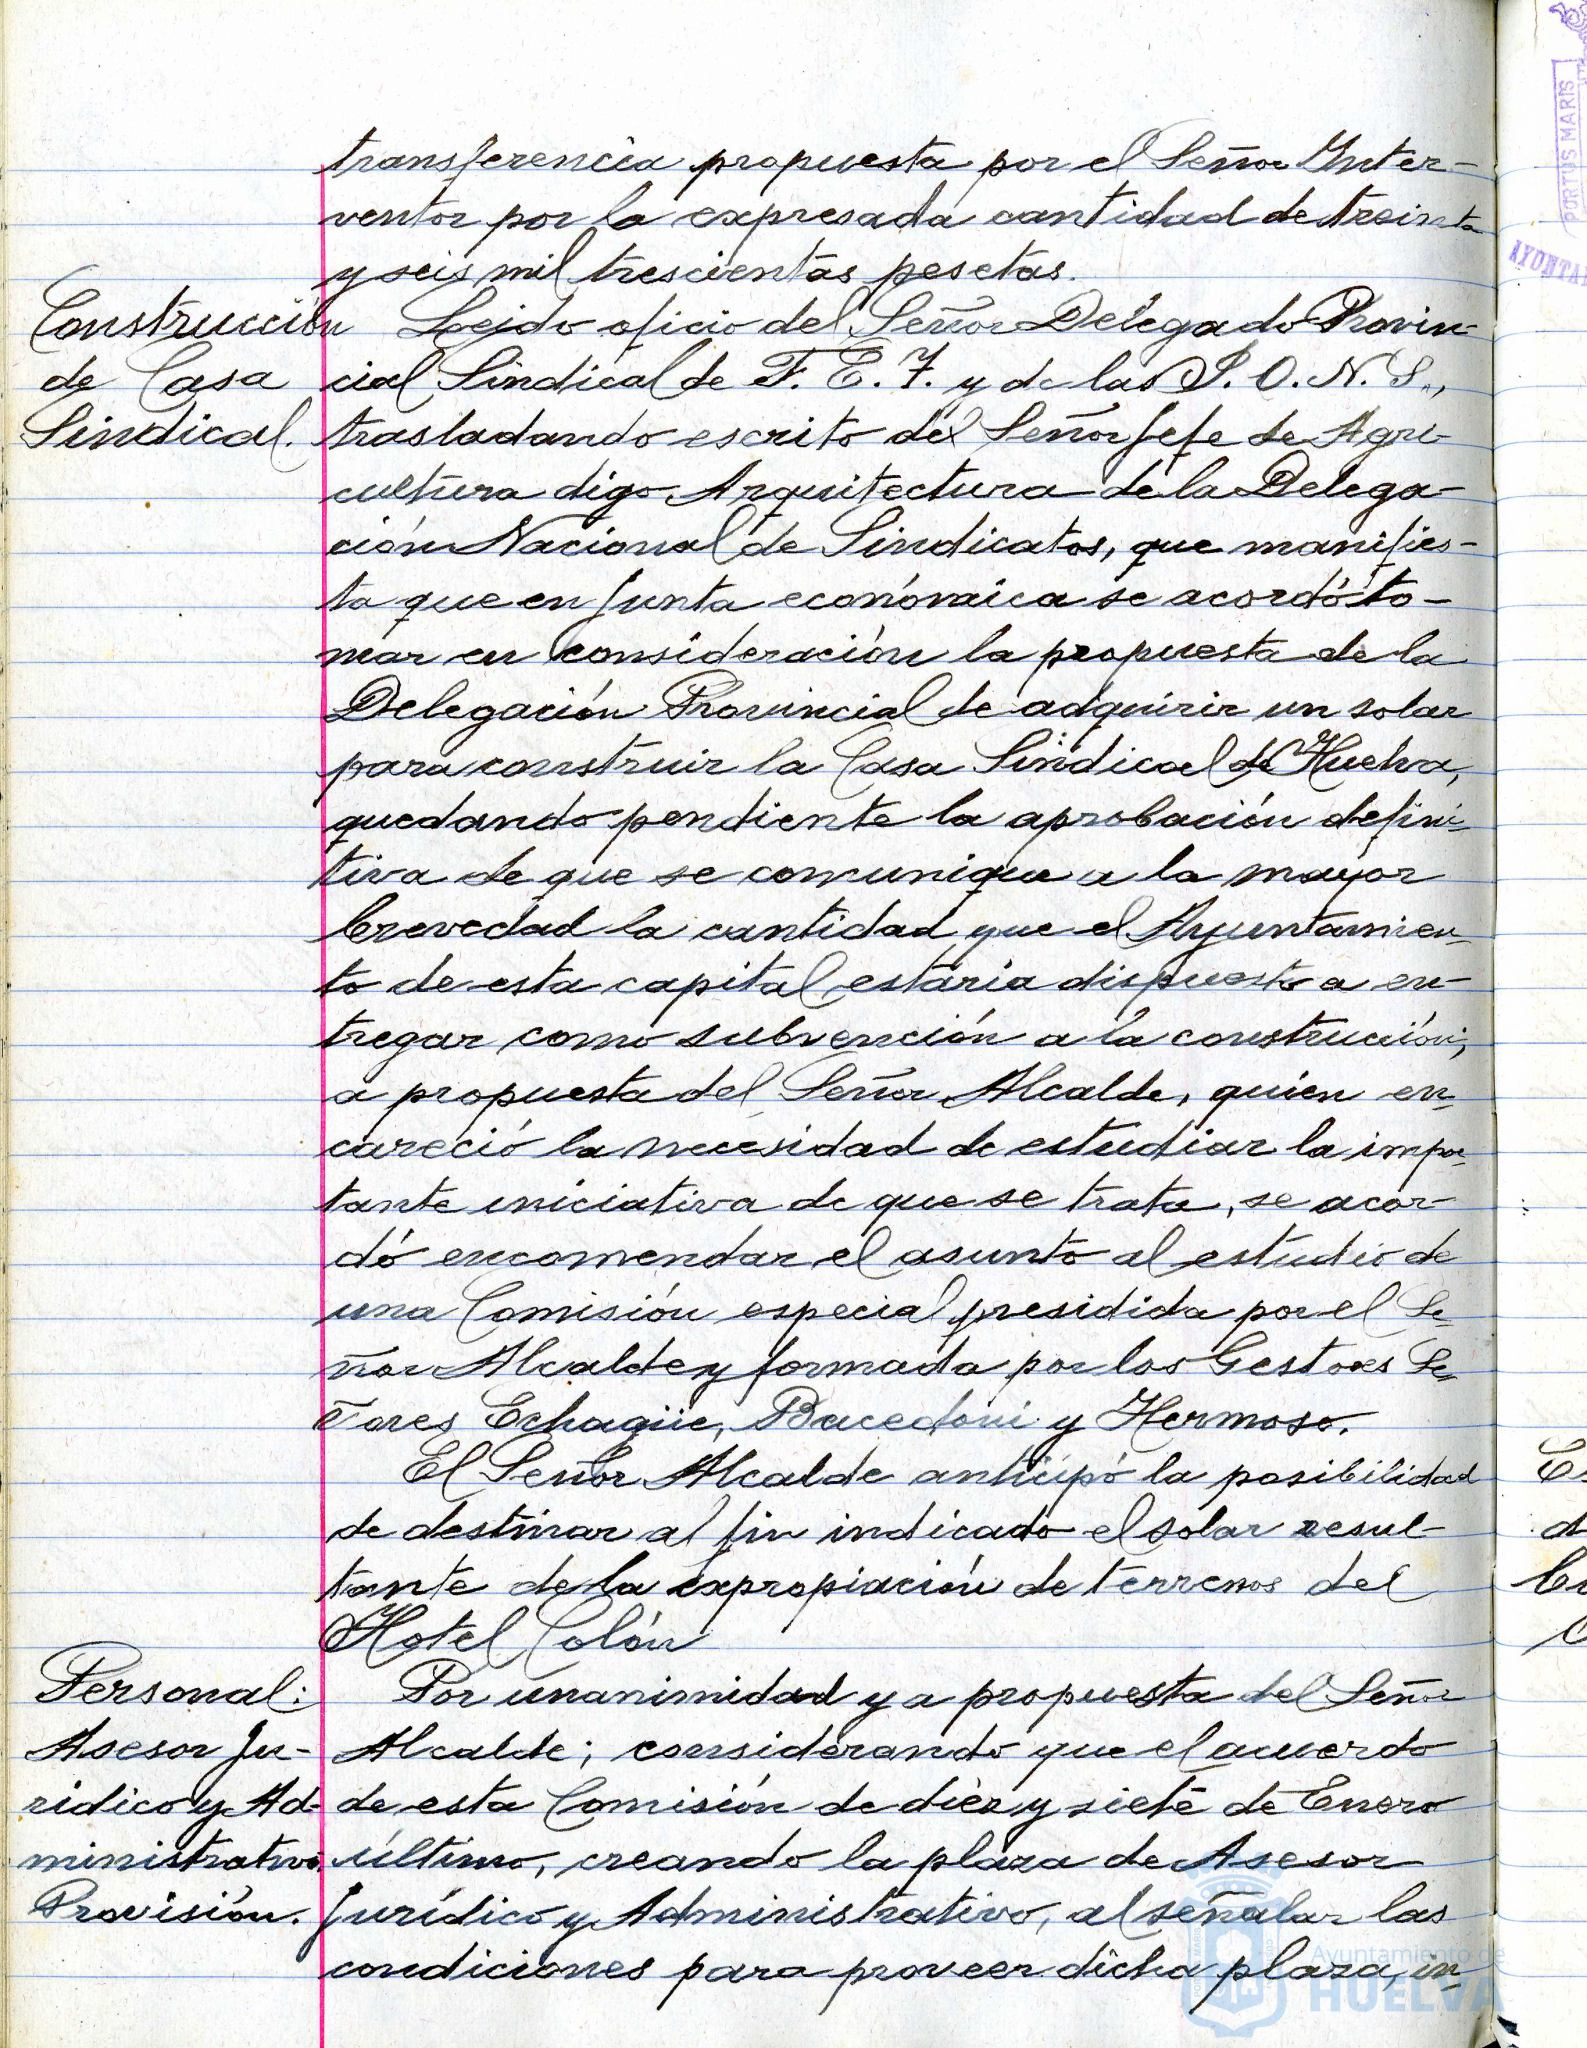 transferencia propuesta por el Señor Inter-
ventor por la expresada cantidad de treinta
y seis mil trescientas pesetas.
Construcción
de Casa
Sindical.
Leido oficio del Señor Delegado Provin-
cial Sindical de F. E. T. y de las J. O. N. S.,
trasladando escrito del Señor Jefe de Agri-
cultura digo Arquitectura de la Delega-
ción Nacional de Sindicatos, que manifies-
ta que en Junta económica se acordó to-
mar en consideración la propuesta de la
Delegación Provincial de adquirir un solar
para construir la Casa Sindical de Huelva,
quedando pendiente la aprobación defini-
tiva de que se comunique a la mayor
brevedad la cantidad que el Ayuntamien-
to de esta capital estaria dispuesto a en-
tregar como subvención a la construcción,
a propuesta del Señor Alcalde, quien en-
careció la necesidad de estudiar la impor-
tante iniciativa de que se trata, se acor-
dó encomendar el asunto al estudio de
una Comisión especial presidida por el Se-
ñor Alcalde y formada por los Gestores Se-
ñores Echagüe, Bacedoni y Hermoso.
El Señor Alcalde anticipó la posibilidad
de destinar al fin indicado el solar resul-
tante de la expropiación de terrenos del
Hotel Colón
Personal:
Asesor Ju-
ridico y Ad-
ministrativo.
Provisión.
Por unanimidad y a propuesta del Señor
Alcalde; considerando que el acuerdo
de esta Comisión de diez y siete de Enero
último, creando la plaza de Asesor
Jurídico y Administrativo, al señalar las
condiciones para proveer dicha plaza, in-
PORTUS MARIS
AYUNTA
Ayuntamiento de
HUELVA